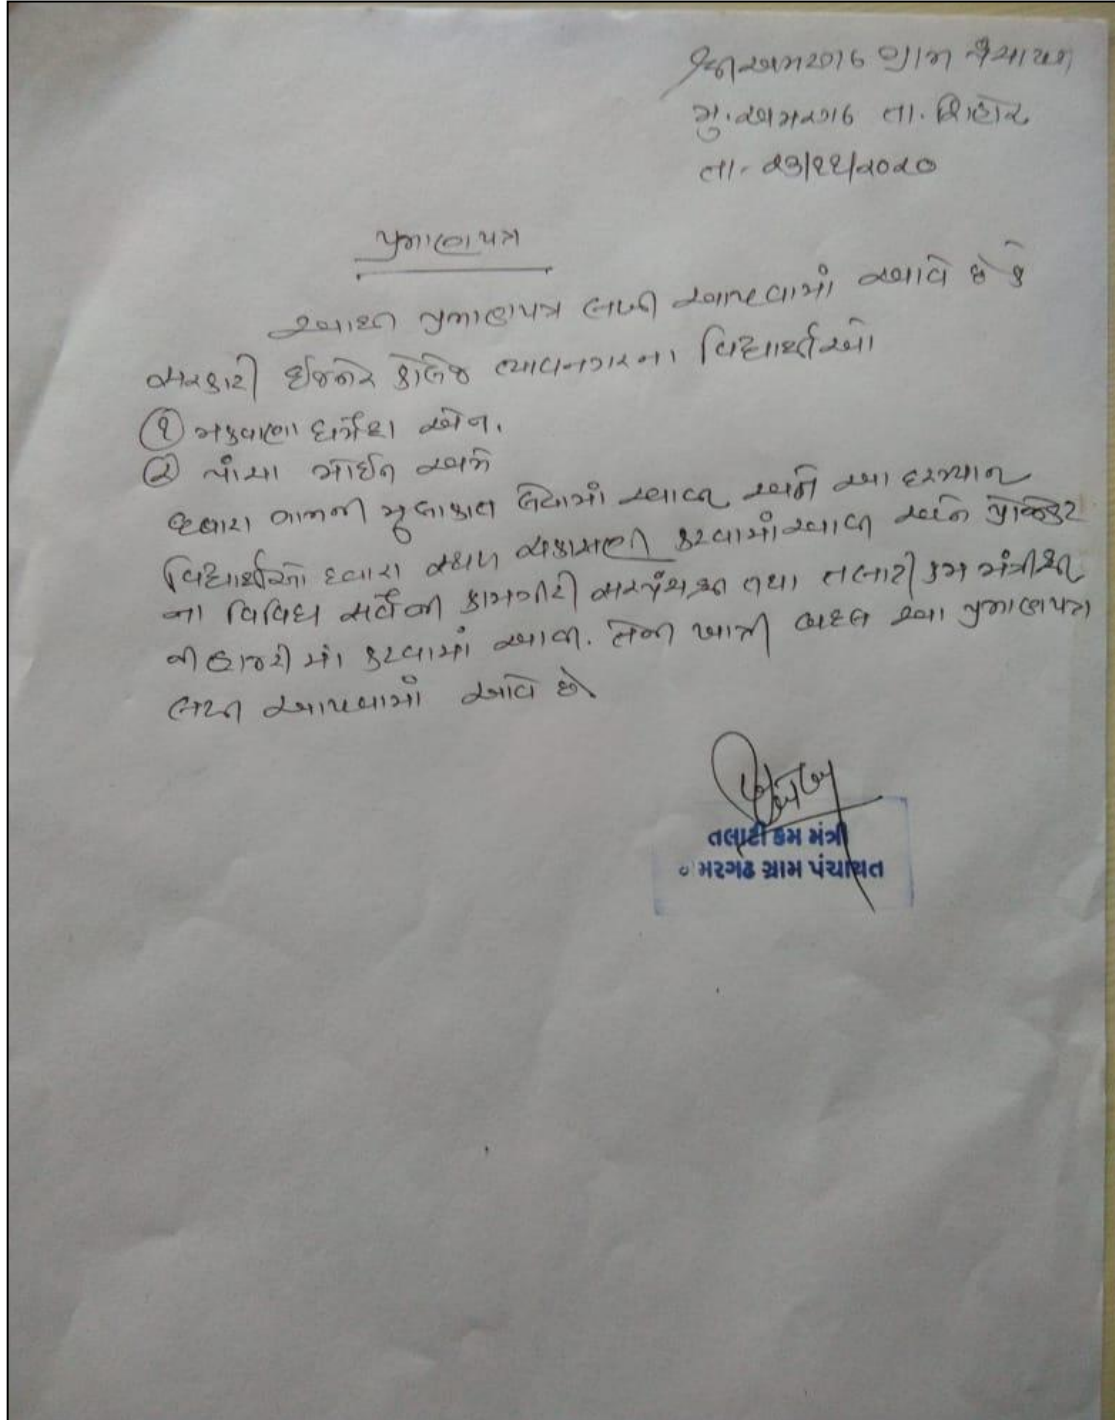 શ્રી અમરગઢ ગ્રામ પંચાયત
મુ. અમરગઢ તા. શિહોર
તા- ૨૩/૧૧/૨૦૨૦
પ્રમાણપત્ર
આથી પ્રમાણપત્ર લખી આપવામાં આવે છે કે
સરકારી ઈજનેર કોલેજ ભાવનગરના વિદ્યાર્થીઓ
① મકવાણા ધર્મેશ એન.
② મોઈન એમ
દ્વારા ગામની મુલાકાત લેવામાં આવી અને આ દરમ્યાન
વિદ્યાર્થીઓ દ્વારા સ્થળ ચકાસણી કરવામાં આવી અને પ્રોજેક્ટ
ના વિવિધ સર્વેની કામગીરી સરપંચશ્રી તથા તલાટી કમ મંત્રીશ્રી
ની હાજરી માં કરવામાં આવી. તેની ખાત્રી બદલ આ પ્રમાણપત્ર
લખી આપવામાં આવે છે
તલાટી કમ મંત્રી
મરગઢ ગ્રામ પંચાયત